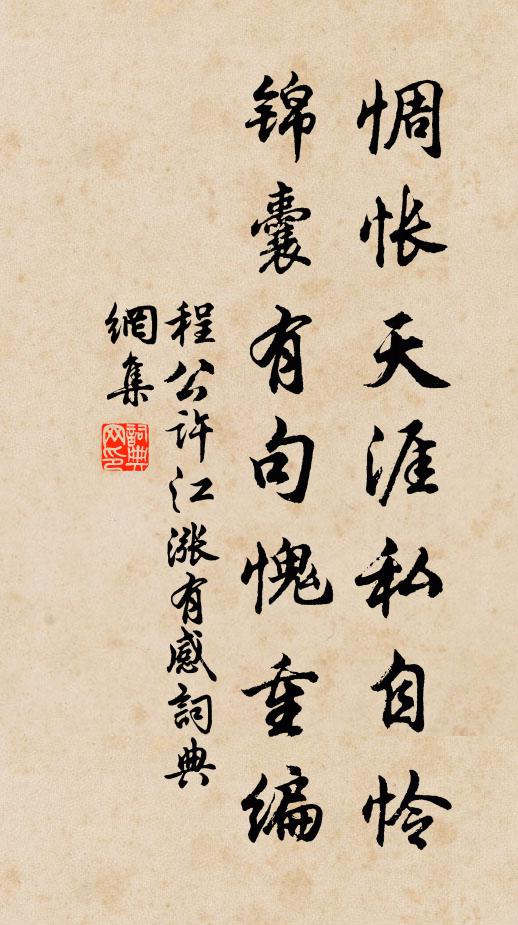 惆怅天涯私自怜
锦囊有句愧重编
程公许江涨有感詞典
網集
詞典网印